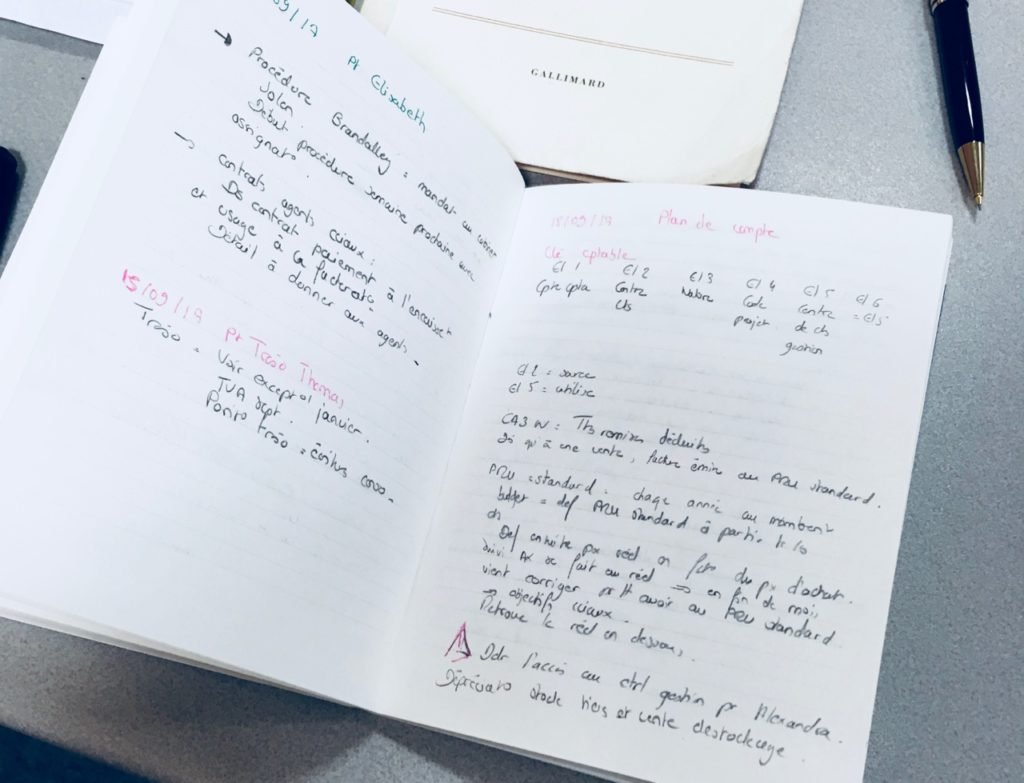 09/19 Pt Elisabeth
→ Procédure Brandalley = mandat au
Jalen.
Début procédure semaine prochaine avec
assignat°.
→ Contrats agents ciaux :
Ds contrat paiement à l'encaisst
et usage à la facturat°
Détail à donner aux agents.
18/09/19 Pt Tréso Thomas
Tréso = Voir except ol janvier.
TVA sept.
Tréso =
GALLIMARD
18/09/19 Plan de compte
Clé cptable
El 1 El 2 El 3 El 4 El 5 El 6
Cpte cpta Centre Nature Code Centre = El 5
cts projet de cts
gestion
El 2 = source
El 5 = utilise
CA3 W = Ttes remises déduites
Ds qu'à une vente, facture émise au PRU standard.
PRU = standard = chaque année au moment
budget = def PRU standard à partir
Def ensuite px réel en fct° du px d'achat.
suivi AX se fait au réel ⇒ en fin de mois,
vient corriger pr avoir au PRU standard
→ objectifs ciaux.
Retrouve le réel en dessous.
Ddr l'accès au ctrl gestion pr Alexandra.
Dépréciat° stock tiers et vente destockage